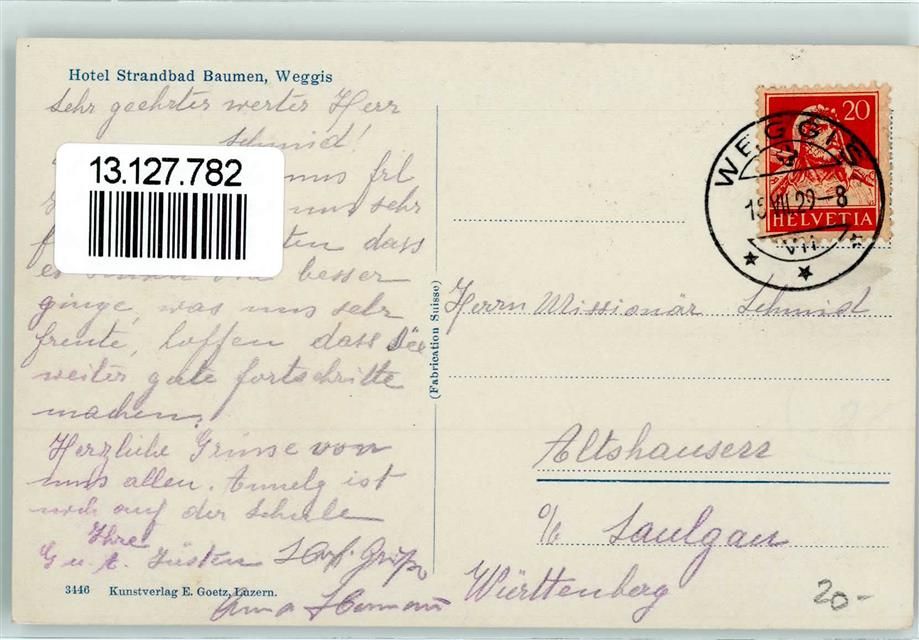 Hotel Strandbad Baumen, Weggis
Sehr geehrter werter Herr
Schmid!
13.127.782
uns frl
uns sehr
dass
es besser
ginge, was uns sehr
freute, hoffen dass Sie
weiter gute fortschritte
machen.
Herzliche Grüsse von
uns allen. ist
noch auf der Schule
Ihre
G u. A.
3446 Kunstverlag E. Goetz, Luzern.
Anna
(Fabrication Suisse)
20
HELVETIA
WEGGIS
VII.29-8
Herrn Missionär Schmid
Altshausen
o/b Saulgau
Württemberg
20-